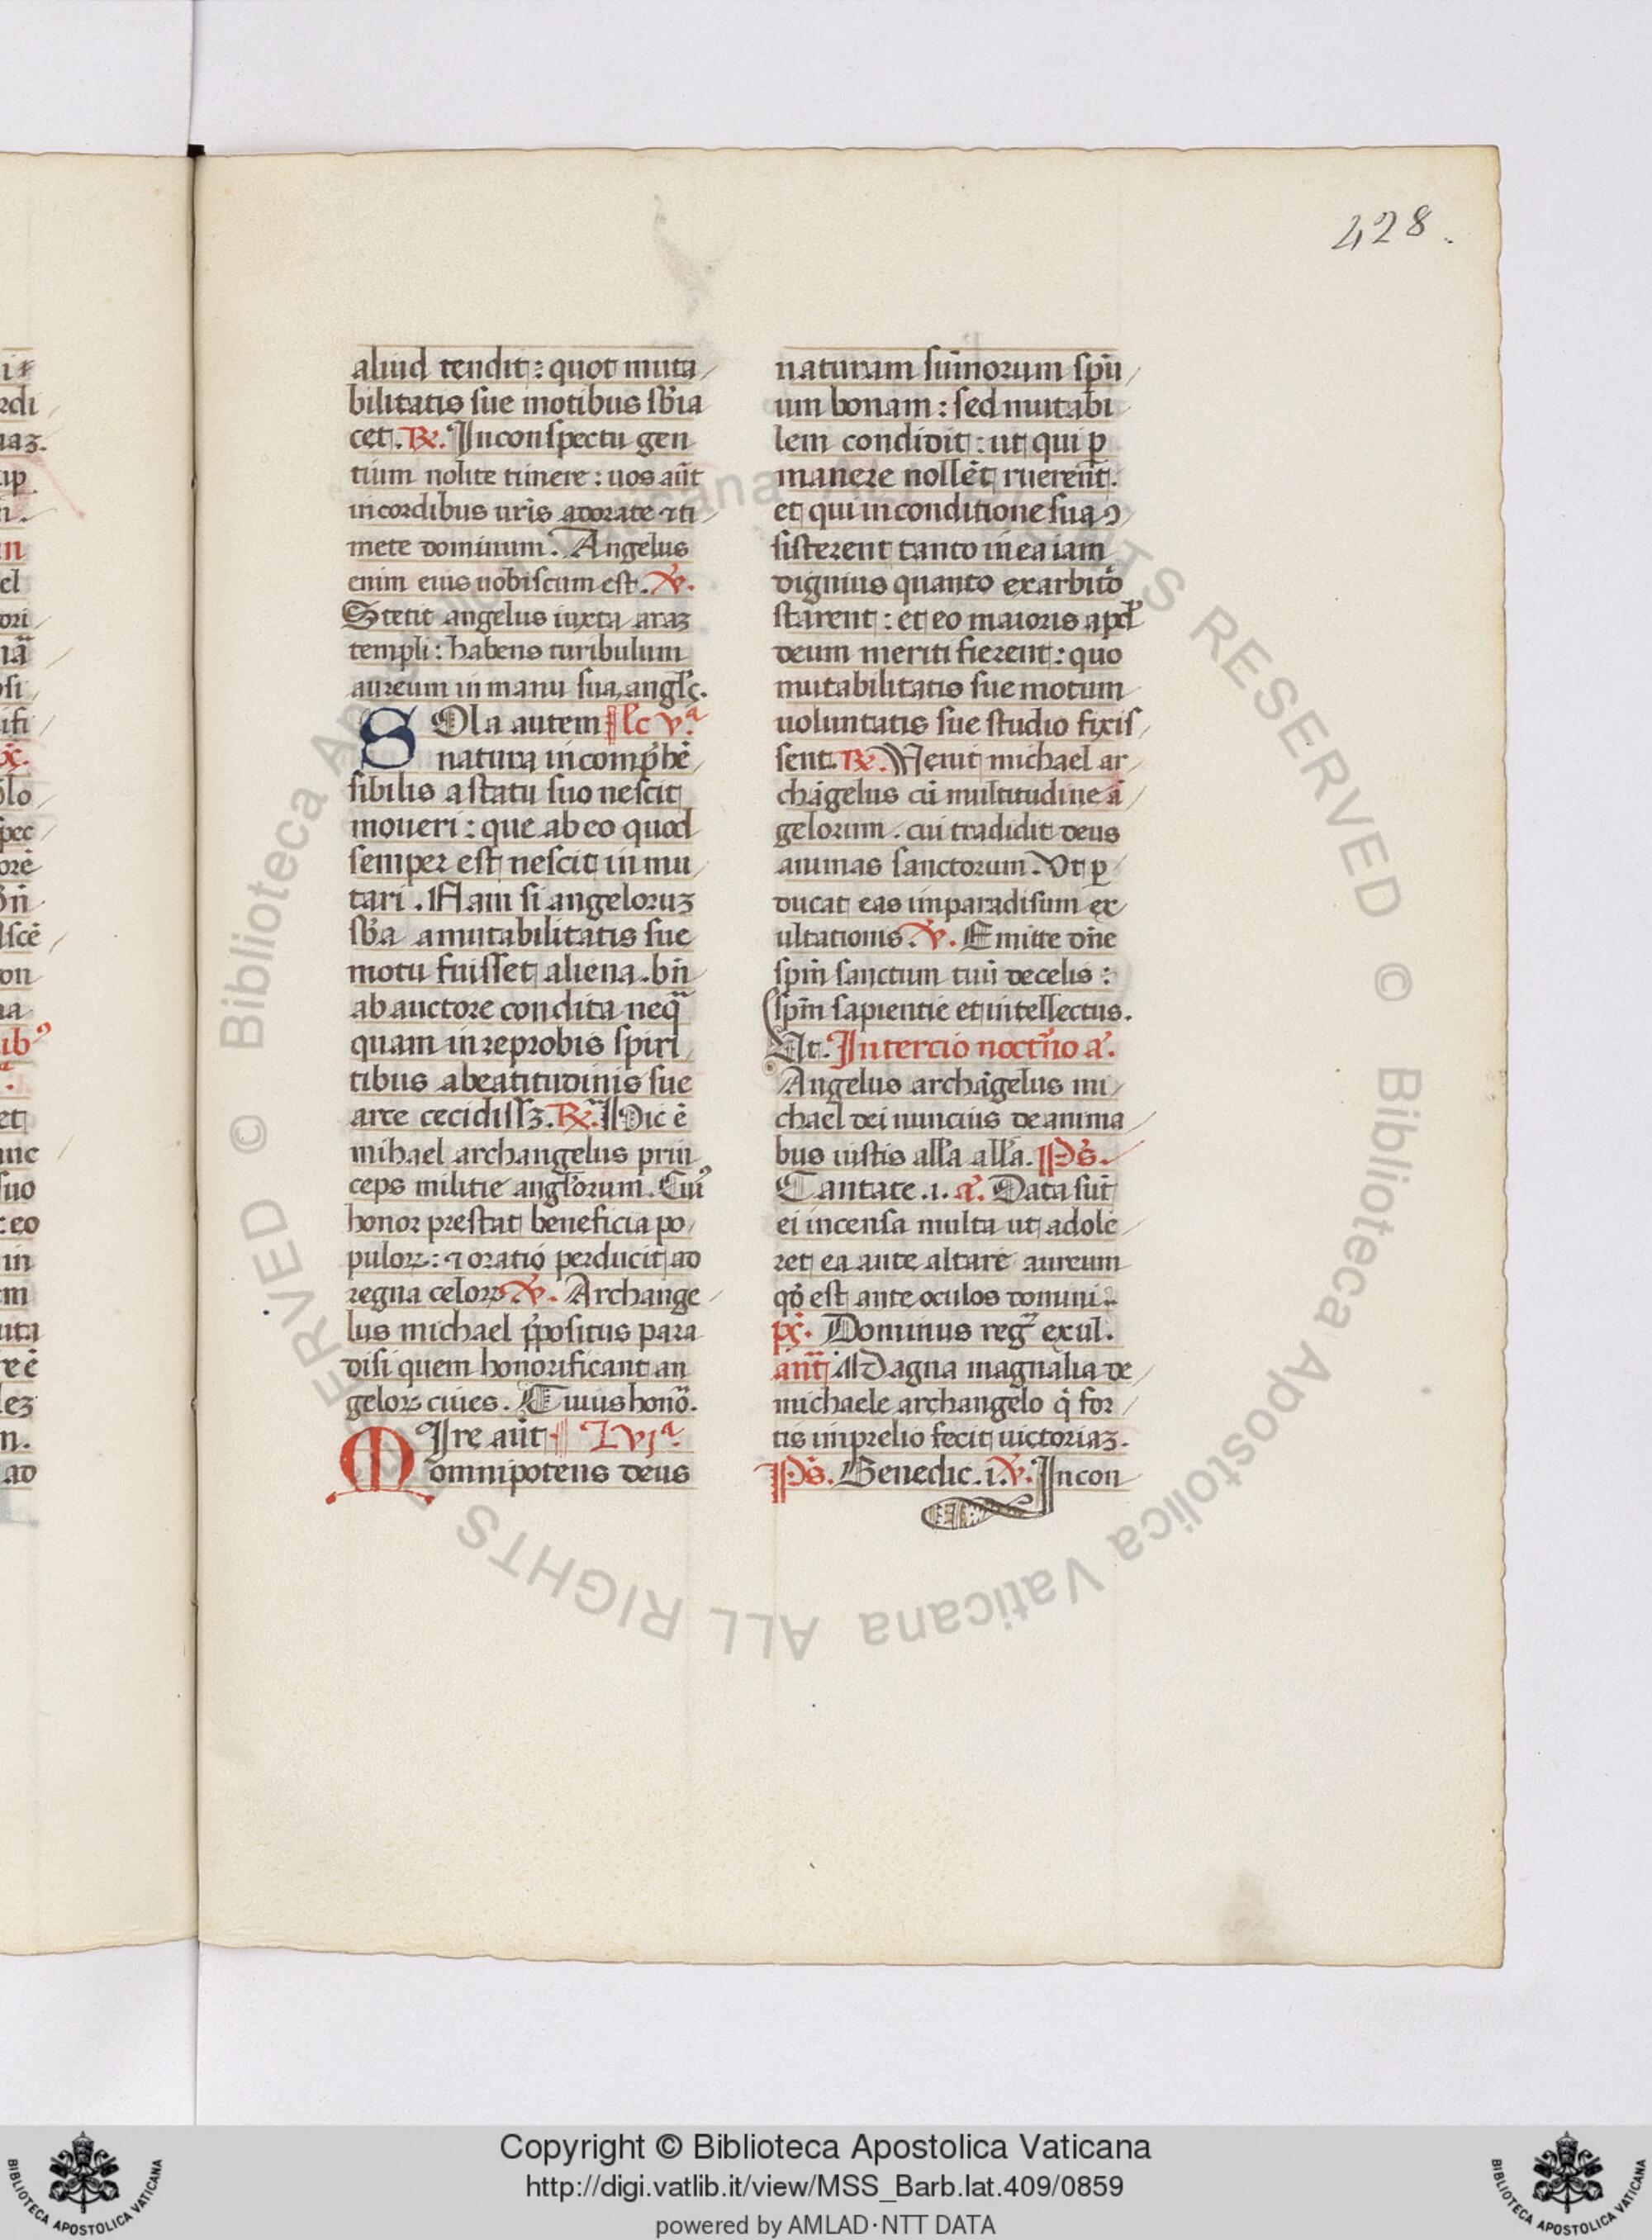 428.
aliud tendit: quot muta/
bilitatis sue motibus sb̄ia
cet. ℞. In conspectu gen
tium nolite timere: uos aūt
in cordibus ur̄is adorate ⁊ ti/
mete dominum. Angelus
enim eius uobiscum est. ℣.
Stetit angelus iuxta araꝫ
templi: habens turibulum
aureum in manu sua, angl̄s.
SOla autem lc̄ vª
natura incomp̄hē/
sibilis a statu suo nescit
moueri: que ab eo quod
semper est nescit inmu
tari. Nam si angeloruꝫ
sb̄a a mutabilitatis sue
motu fuisset aliena. bn̄
ab auctore condita neq̄
quam in reprobis spiri/
tibus a beatitudinis sue
arce cecidissꝫ. ℞. Hic ē
mihael archangelus prin
ceps militie angl̄orum. Cuiꝰ
honor prestat beneficia po/
puloꝝ: ⁊ oratio perducit ad
regna celoꝝ ℣. Archange/
lus michael p̄positus para
disi quem honorificant an
geloꝝ ciues. Cuius honō.
MIre aūt L vjª
omnipotens deus
naturam sūmorum spūu/
um bonam: sed mutabi
lem condidit: ut qui ꝑ
manere nollēt ruerent.
et qui in conditione sua ꝯ/
sisterent tanto in ea iam
dignius quanto ex arbit̄o
starent: et eo maioris apd̄
deum meriti fierent: quo
mutabilitatis sue motum
uoluntatis sue studio fixis/
sent. ℞. Uenit michael ar/
chāgelus cū multitudine ā/
gelorum. cui tradidit deus
animas sanctorum. Vt ꝑ/
ducat eas in paradisum ex/
ultationis. ℣. Emitte dn̄e
sp̄m sanctum tuū de celis:
sp̄m sapientie et intellectus.
Ut. In tercio noct̄no a.
Angelus archāgelus mi/
chael dei nuncius de anima/
bus iustis all̄a all̄a. Ps̄.
Cantate. i. a. Data sūt
ei incensa multa ut adole/
ret ea ante altare aureum
qd̄ est ante oculos domini.
ps̄. Dominus reḡ exul.
ant̄ Magna magnalia de/
michaele archangelo q̄ for/
tis in prelio fecit uictoriaꝫ.
Ps̄. Benedic. i. ℣. In con
© Biblioteca Apostolica Vaticana ALL RIGHTS RESERVED © Biblioteca Apostolica Vaticana ALL RIGHTS RESERVED
BIBLIOTECA APOSTOLICA VATICANA
Copyright © Biblioteca Apostolica Vaticana
http://digi.vatlib.it/view/MSS_Barb.lat.409/0859
powered by AMLAD·NTT DATA
BIBLIOTECA APOSTOLICA VATICANA